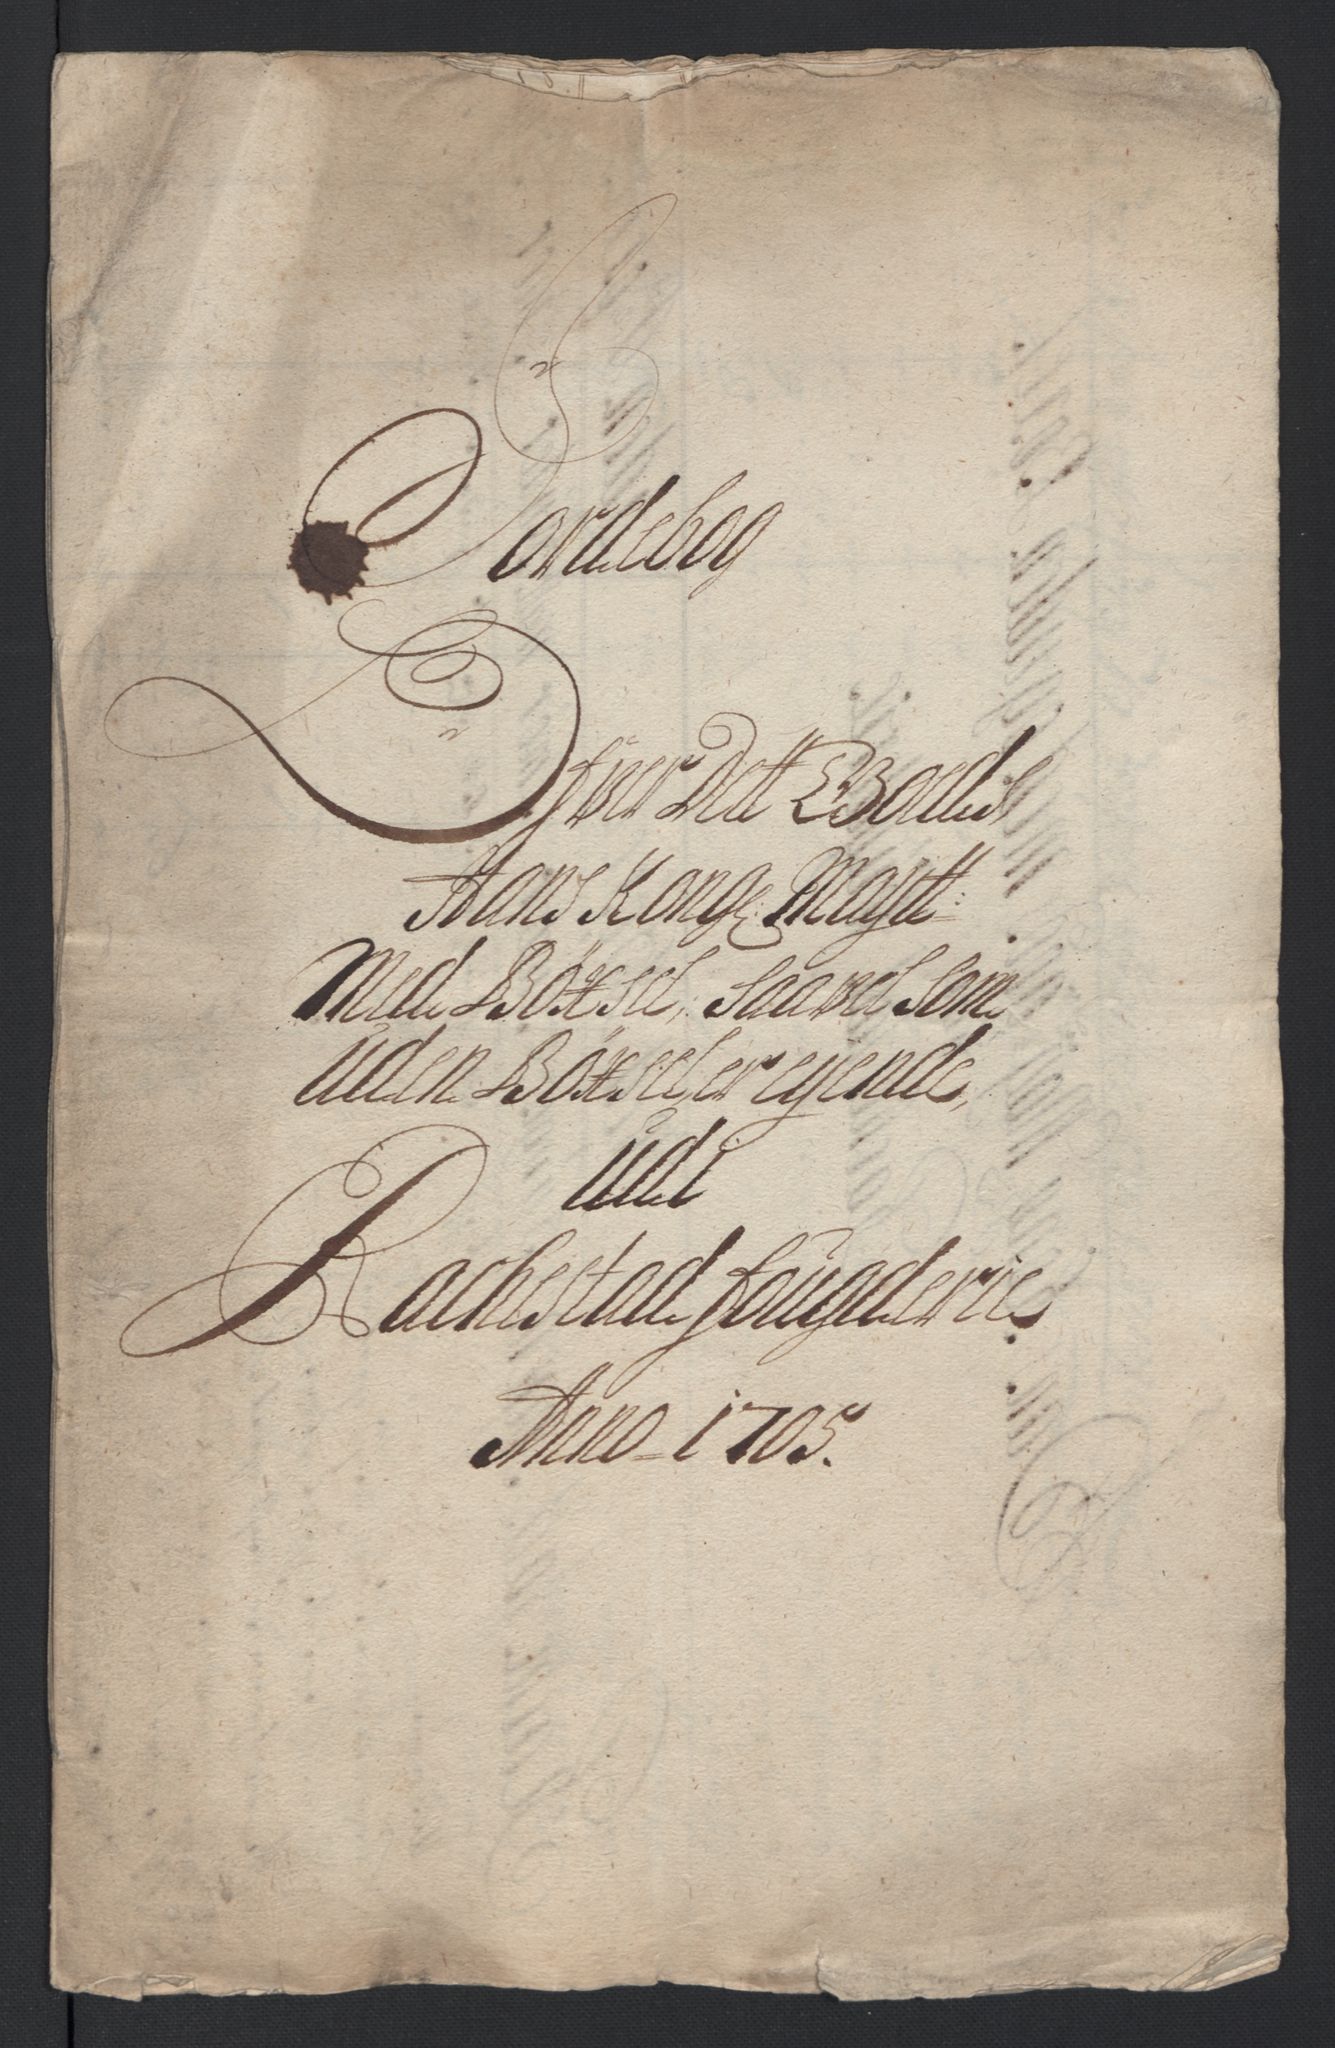 Jordebog
Ofver Dett Goeds
Hans Konge: Maÿtt:
Med Böxsel, saavel som
Uden Böxsel er eyende,
Udi
Rachestad fougderie
Anno 1705.